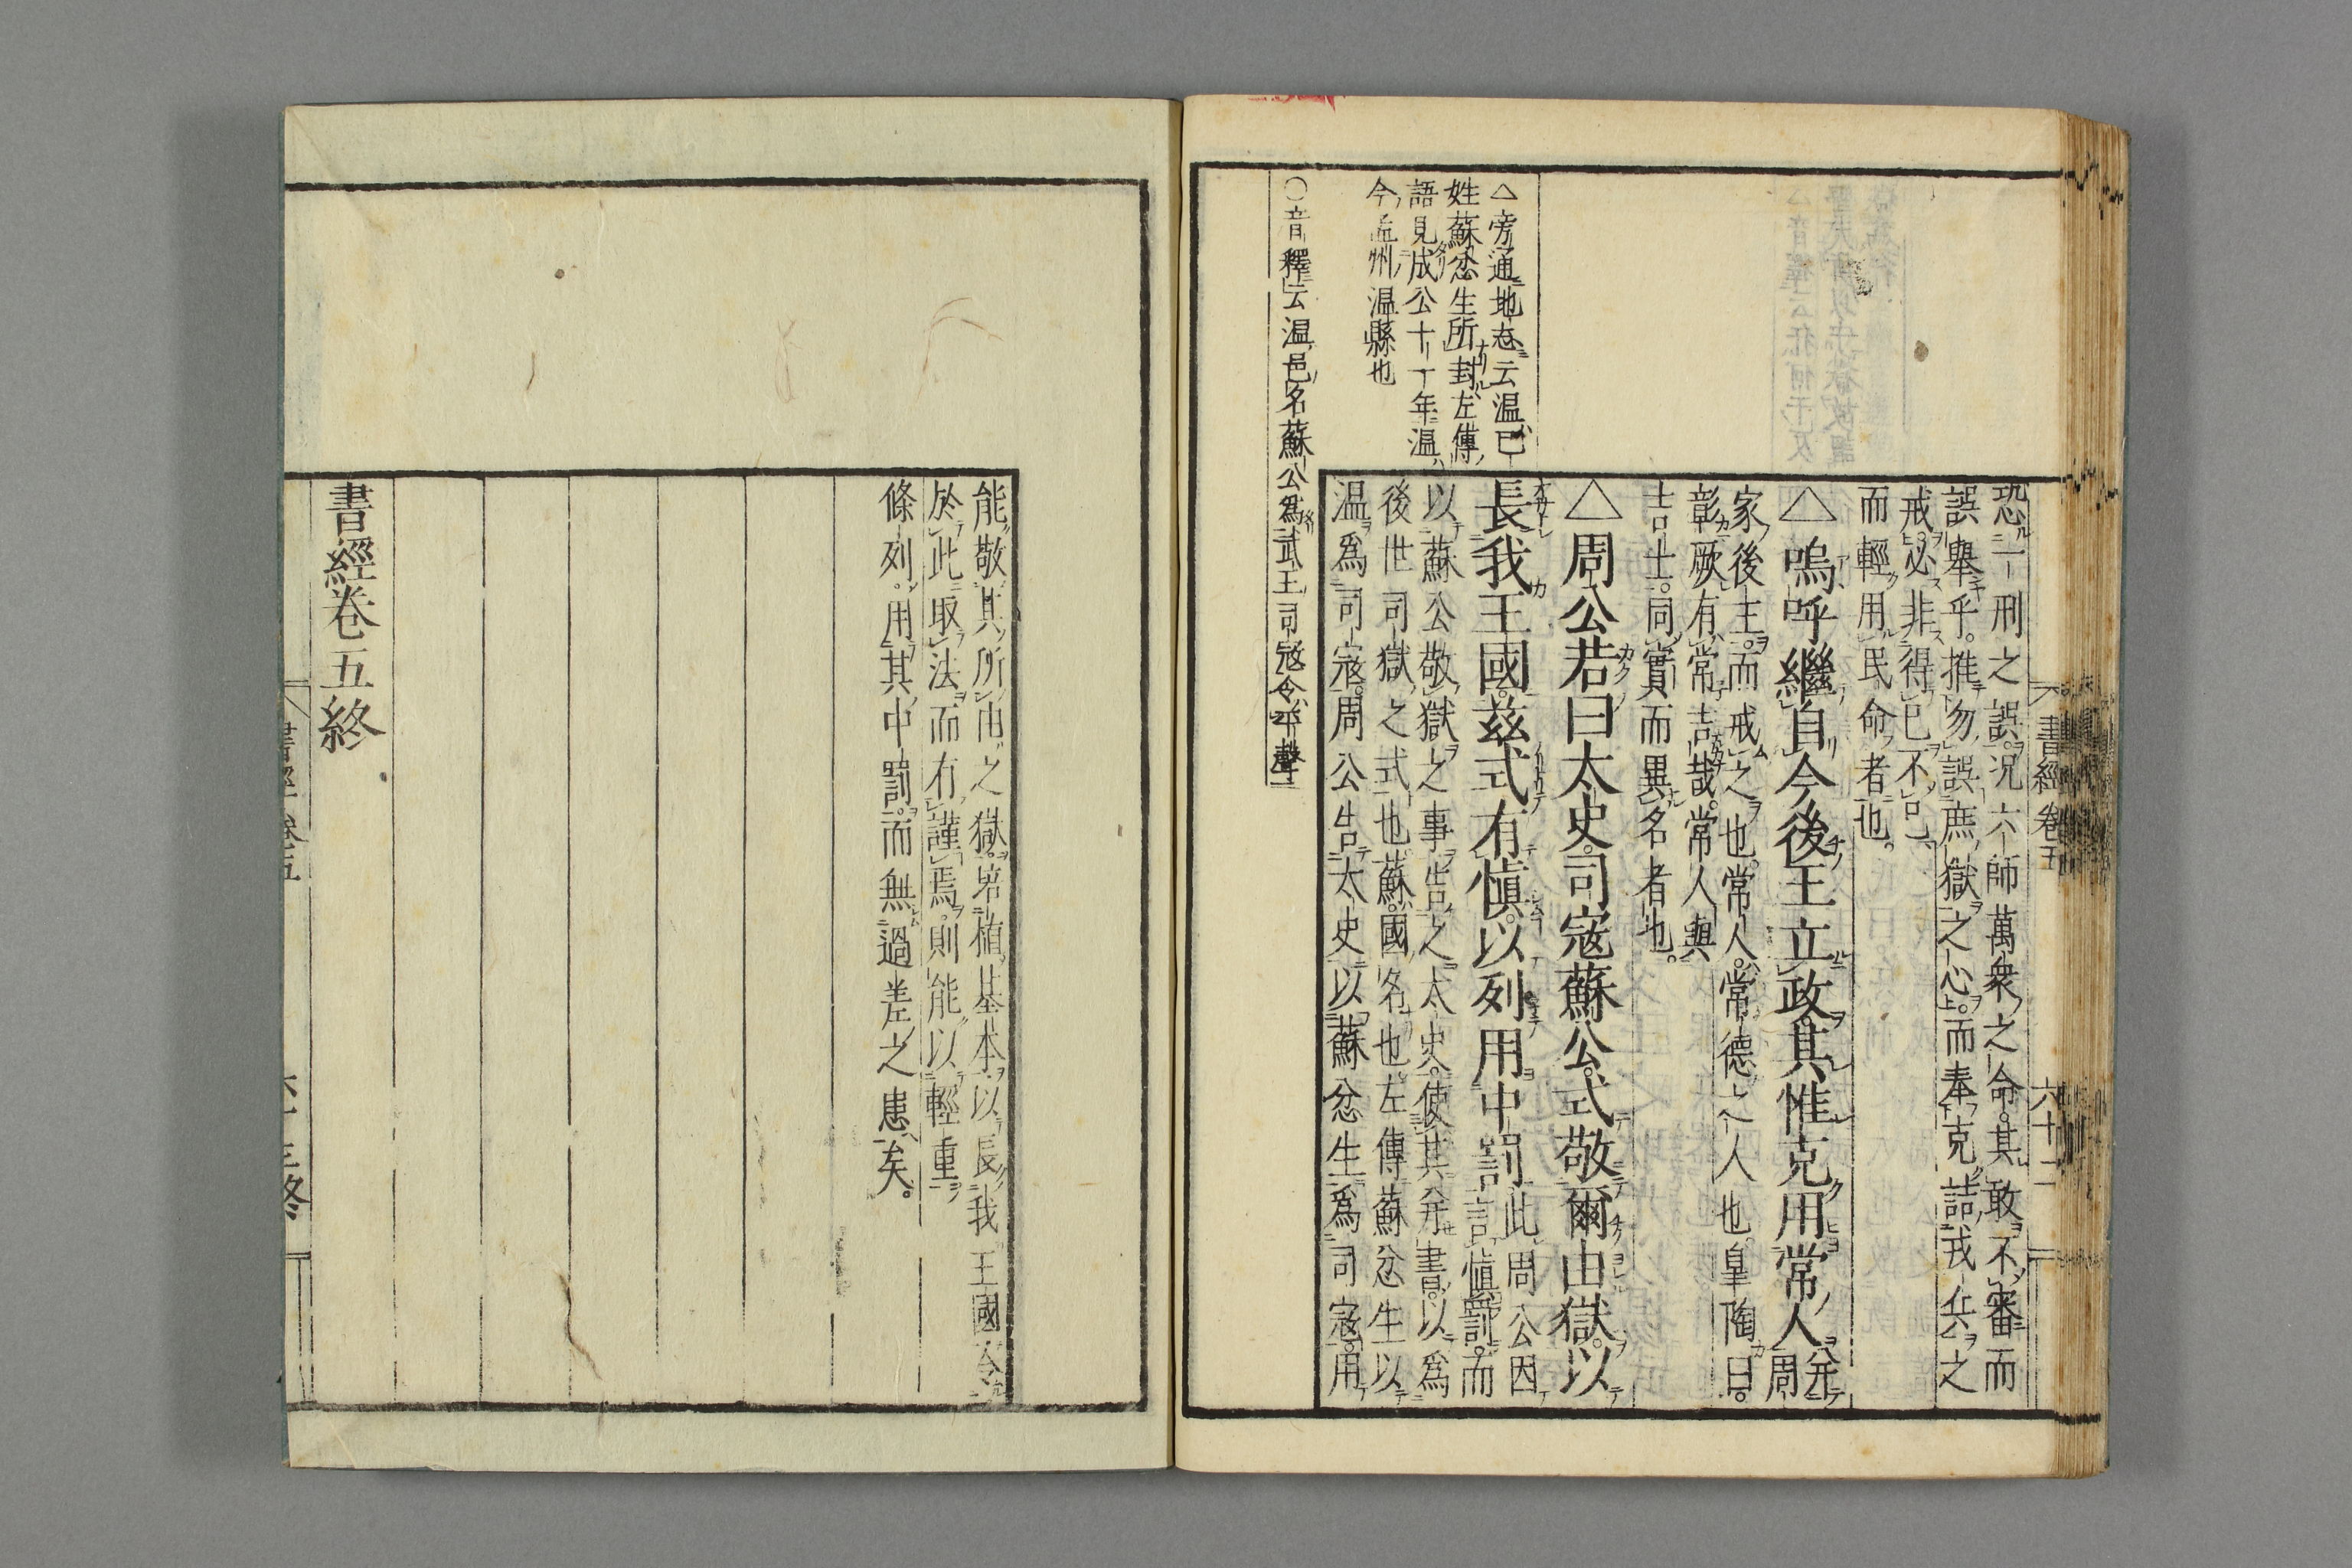 △旁通地志云温已
姓蘇忿生所封左傳
語見成公十一年温
今孟州温縣也
○音釋云温邑名蘇公爲武王司寇令平聲
恐一刑之誤。況六師萬衆之命。其敢不審而
誤舉乎。推勿誤庶獄之心。而奉克詰戎兵之
戒。必非得已不已、
而輕用民命者也。
△嗚呼繼自今後王立政。其惟克用常人并周
家後王。而戒之也。常人。常德之人也。皐陶曰。
彰厥有常吉哉。常人與
吉士。同實而異名者也。
△周公若曰太史。司寇蘇公。式敬爾由獄。以
長我王國。茲式有愼。以列用中罰此周公因言愼罰。而
以蘇公敬獄之事告之太史。使其并書。以爲
後世司獄之式也。蘇。國名也。左傳蘇忿生以
温爲司寇。周公告太史以蘇忿生爲司寇。用
書經卷五
六十二
能敬其所由之獄。培植基本。以長我王國。令
於此取法而有謹焉。則能以輕重
條列。用其中罰。而無過差之患矣。
書經卷五終
書經卷五